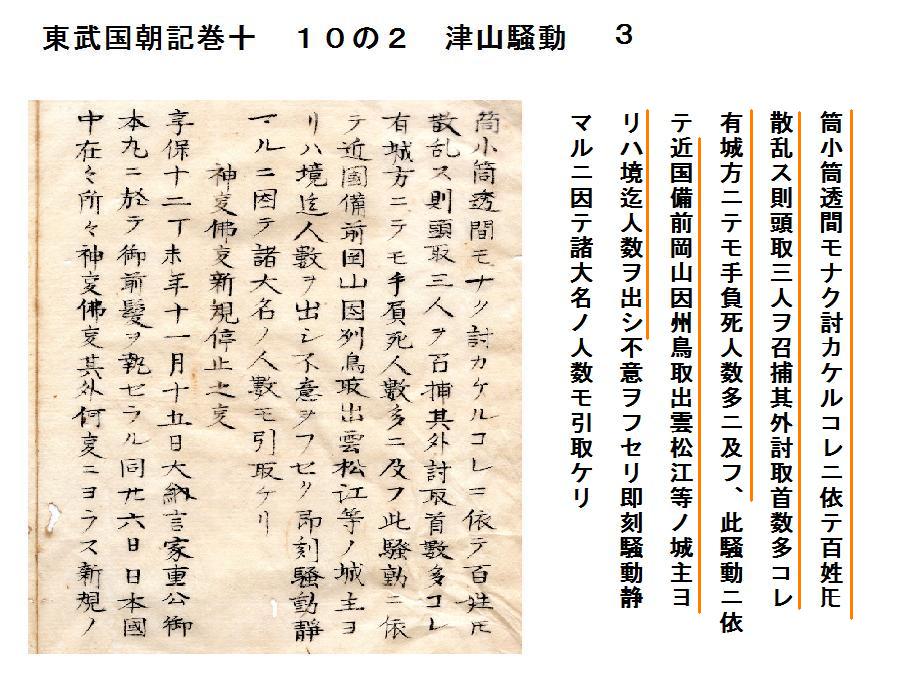 東武国朝記巻十　１０の２　津山騒動　３
筒小筒透間モナク討カケルコレニ依テ百姓𪜈
散乱ス則頭取三人ヲ召捕其外討取首数多コレ
有城方ニテモ手負死人数多ニ及フ、此騒動ニ依
テ近国備前岡山因州鳥取出雲松江等ノ城主ヨ
リハ境迄人数ヲ出シ不意ヲフセリ即刻騒動静
マルニ因テ諸大名ノ人数モ引取ケリ
筒小筒透間モナク討カケルコレニ依テ百姓𪜈
散乱ス則頭取三人ヲ召捕其外討取首數多コレ
有城方ニテモ手屓死人數多ニ及フ此騒動ニ依
テ近國備前岡山因刕鳥取出雲松江等ノ城主ヨ
リハ境迄人數ヲ出シ不意ヲフセリ即刻騒動静
マルニ因テ諸大名ノ人數モ引取ケリ
神㕝佛㕝新規停止之㕝
享保十二丁未年十一月十五日大納言家重公御
本丸ニ於テ御前髪ヲ執セラル同廿六日日本國
中在々所々神㕝佛㕝其外何㕝ニヨラス新規ノ